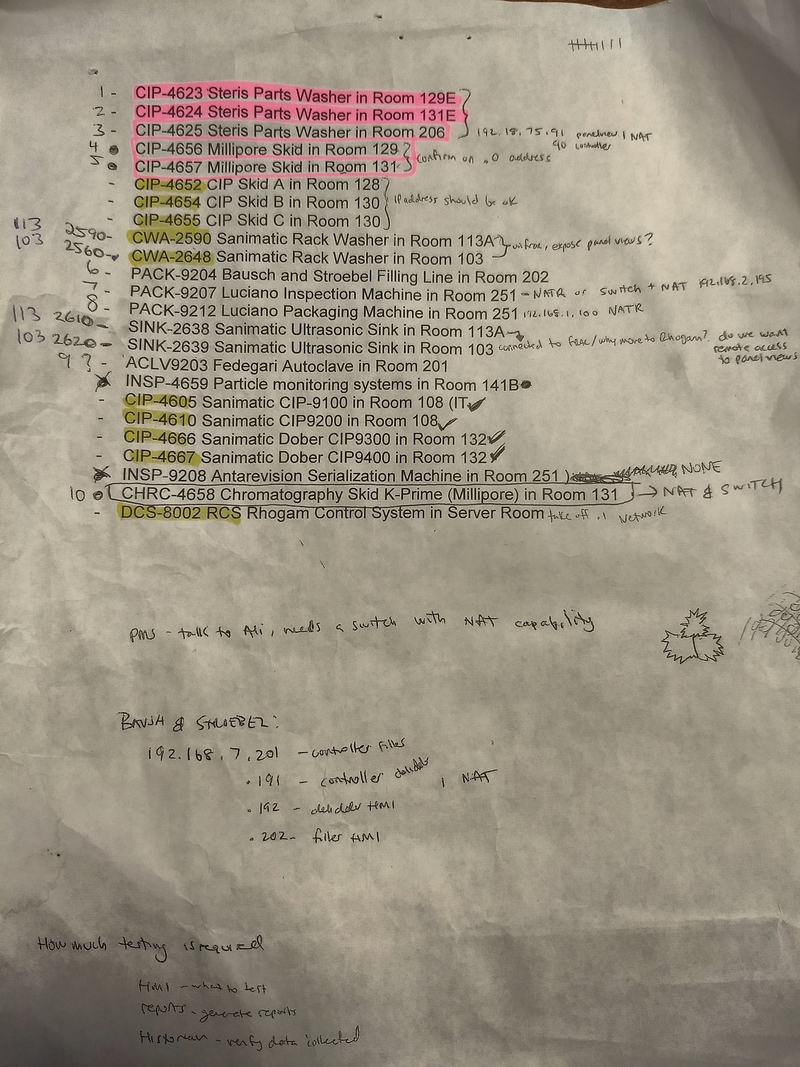 1 - CIP-4623 Steris Parts Washer in Room 129E
2 - CIP-4624 Steris Parts Washer in Room 131E
3 - CIP-4625 Steris Parts Washer in Room 206 192.18.75.91 panelview 1 NAT
90 controller
4 CIP-4656 Millipore Skid in Room 129
5 CIP-4657 Millipore Skid in Room 131 confirm on .0 address
- CIP-4652 CIP Skid A in Room 128
- CIP-4654 CIP Skid B in Room 130 IP address should be ok
- CIP-4655 CIP Skid C in Room 130
113 2590- CWA-2590 Sanimatic Rack Washer in Room 113A expose panel views?
103 2560- CWA-2648 Sanimatic Rack Washer in Room 103
6 - PACK-9204 Bausch and Stroebel Filling Line in Room 202
7 - PACK-9207 Luciano Inspection Machine in Room 251 - NATR or switch + NAT 192.168.2.195
8 - PACK-9212 Luciano Packaging Machine in Room 251 192.168.1.100 NATR
113 2610- SINK-2638 Sanimatic Ultrasonic Sink in Room 113A
103 2620- SINK-2639 Sanimatic Ultrasonic Sink in Room 103 connected to frac/why move to Rhogam? do we want
remote access
to panelviews
9 ? - ACLV9203 Fedegari Autoclave in Room 201
INSP-4659 Particle monitoring systems in Room 141B
- CIP-4605 Sanimatic CIP-9100 in Room 108 (IT
- CIP-4610 Sanimatic CIP9200 in Room 108
- CIP-4666 Sanimatic Dober CIP9300 in Room 132
- CIP-4667 Sanimatic Dober CIP9400 in Room 132
INSP-9208 Antarevision Serialization Machine in Room 251 ) NONE
10 CHRC-4658 Chromatography Skid K-Prime (Millipore) in Room 131 → NAT & SWITCH
- DCS-8002 RCS Rhogam Control System in Server Room take off .1 network
PMS - talk to Ali, needs a switch with NAT capability
BAUSH & STROEBEL:
192.168.7.201 - controller filler
.191 - controller delidder 1 NAT
.192 - delidder HMI
.202 - filler HMI
How much testing is required
HMI - what to test
reports - generate reports
Historian - verify data collected